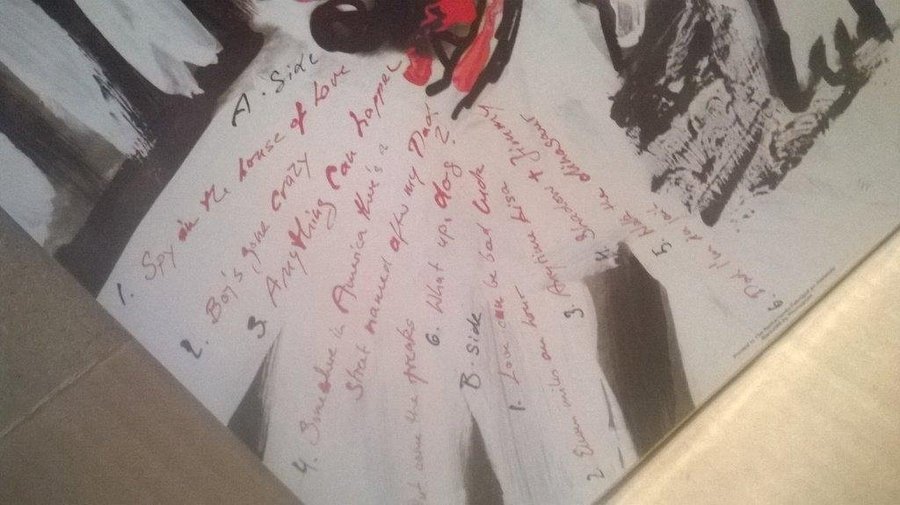 A. Side
1. Spy in the house of love
2. Boy's gone crazy
3 Anything Can happen
4. Somewhere in America there's a
Street named after my Dad
out came the freaks
6. What up, dog?
B. Side
1. Love can be bad luck
2 Eleven miles an hour
3. Anytime Lisa
4. Shadow + Jimmy
5. the dinosaur
6. Dad I'm in jail